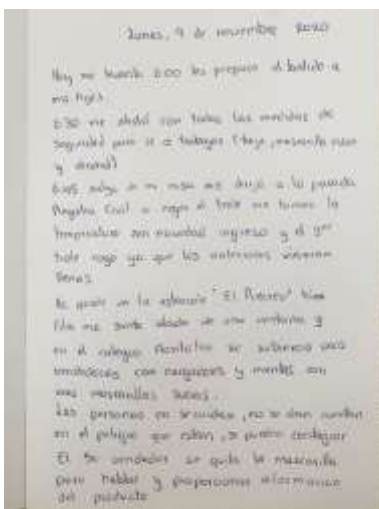 Lunes, 9 de noviembre 2020
Hoy me levanto 6:00 les preparo el batido a
mis hijos.
6:30 me alisto con todas las medidas de
seguridad para ir a trabajar (traje, mascarilla
y alcohol)
6:45 salgo de mi casa me dirijo a la parada
Registro Civil a coger el trole me toman la
temperatura sin novedad ingreso y el
trole ya que los anteriores vinieron
llenos.
Me quedo en la estación "El Recreo" hice
fila me siento alado de una ventana y
en el colegio Montúfar se subieron
vendedores con
mascarillas sucias.
Las personas no se cuidan, no se dan cuenta
en el peligro que están, se pueden contagiar
El Sr vendedor se quita la mascarilla
para hablar y proporcionar información
del producto